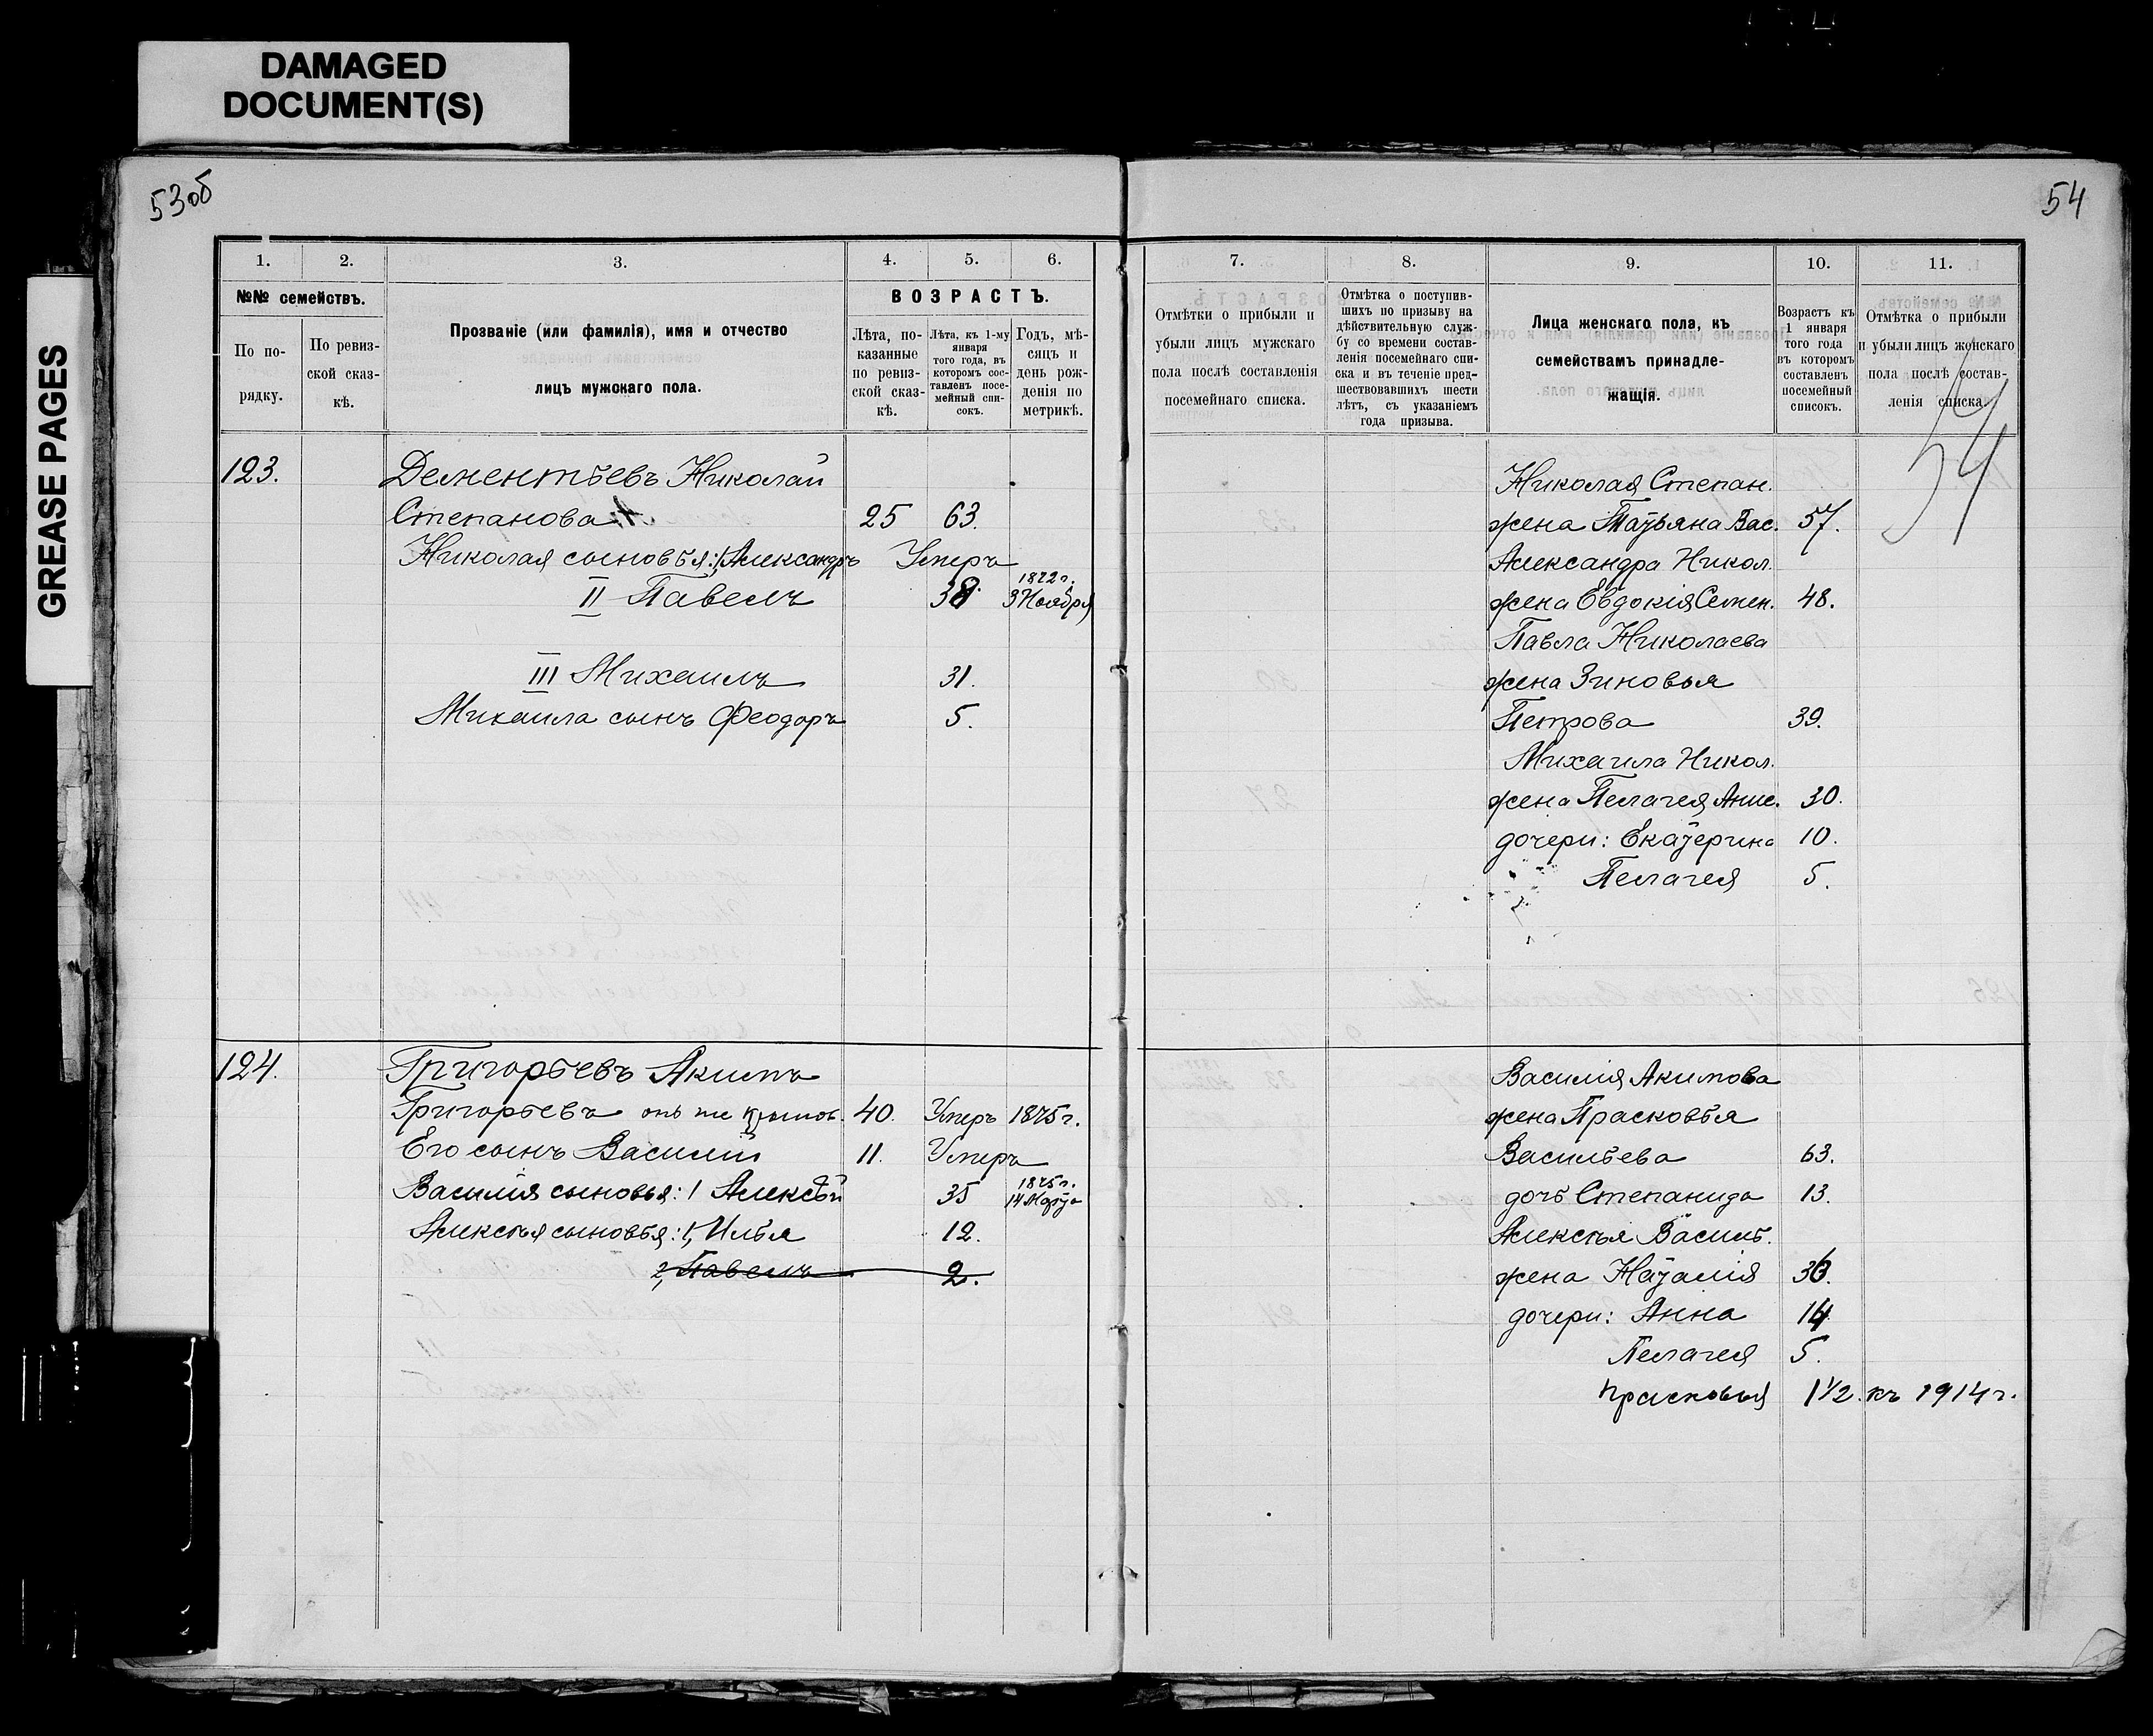 DAMAGED
DOCUMENT(S)
GREASE PAGES
53об
1.
2.
3.
4.
5.
6.
№№ семействъ.
ВОЗРАСТЪ.
По по-
рядку.
По ревиз-
ской сказ-
кѣ.
Прозваніе (или фамилія), имя и отчество
лицъ мужскаго пола.
Лѣта, по-
казанные
по ревиз-
ской сказ-
кѣ.
Лѣта, къ 1-му
января
того года, въ
которомъ сос-
тавленъ посе-
мейный спи-
сокъ.
Годъ, мѣ-
сяцъ и
день рож-
денія по
метрикѣ.
123.
Дементьевъ Николай
Степанова 25 63.
Николая сыновья: 1, Александръ Умеръ
II Павелъ 38. 1872 г. 3 Ноября
III Михаилъ 31.
Михаила сынъ Феодоръ 5.
124.
Григорьевъ Акимъ
Григорьевъ онъ же 40. Умеръ 1875 г.
Его сынъ Василій 11. Умеръ
Василія сыновья: 1 Алексѣй 35 1875 г. 14 Марта
Алексѣя сыновья: 1, Илья 12.
2, Павелъ 2.
54
7.
8.
9.
10.
11.
Отмѣтки о прибыли и
убыли лицъ мужскаго
пола послѣ составленія
посемейнаго списка.
Отмѣтка о поступив-
шихъ по призыву на
дѣйствительную служ-
бу со времени состав-
ленія посемейнаго спи-
ска и въ теченіе пред-
шествовавшихъ шести
лѣтъ, съ указаніемъ
года призыва.
Лица женскаго пола, къ
семействамъ принадле-
жащія.
Возрастъ къ
1 января
того года
въ которомъ
составленъ
посемейный
списокъ.
Отмѣтка о прибыли
и убыли лицъ женскаго
пола послѣ состав-
ленія списка.
54
Николая Степан.
жена Татьяна Вас. 57.
Александра Никол.
жена Евдокія Семен. 48.
Павла Николаева
жена Зиновья
Петрова 39.
Михаила Никол.
жена Пелагея 30.
дочери: Екатерина 10.
Пелагея 5.
Василія Акимова
жена Прасковья
Васильева 63.
дочь Степанида 13.
Алексѣя Василь.
жена Наталія 36.
дочери: Анна 14.
Пелагея 5.
Прасковья 1 1/2. къ 1914 г.